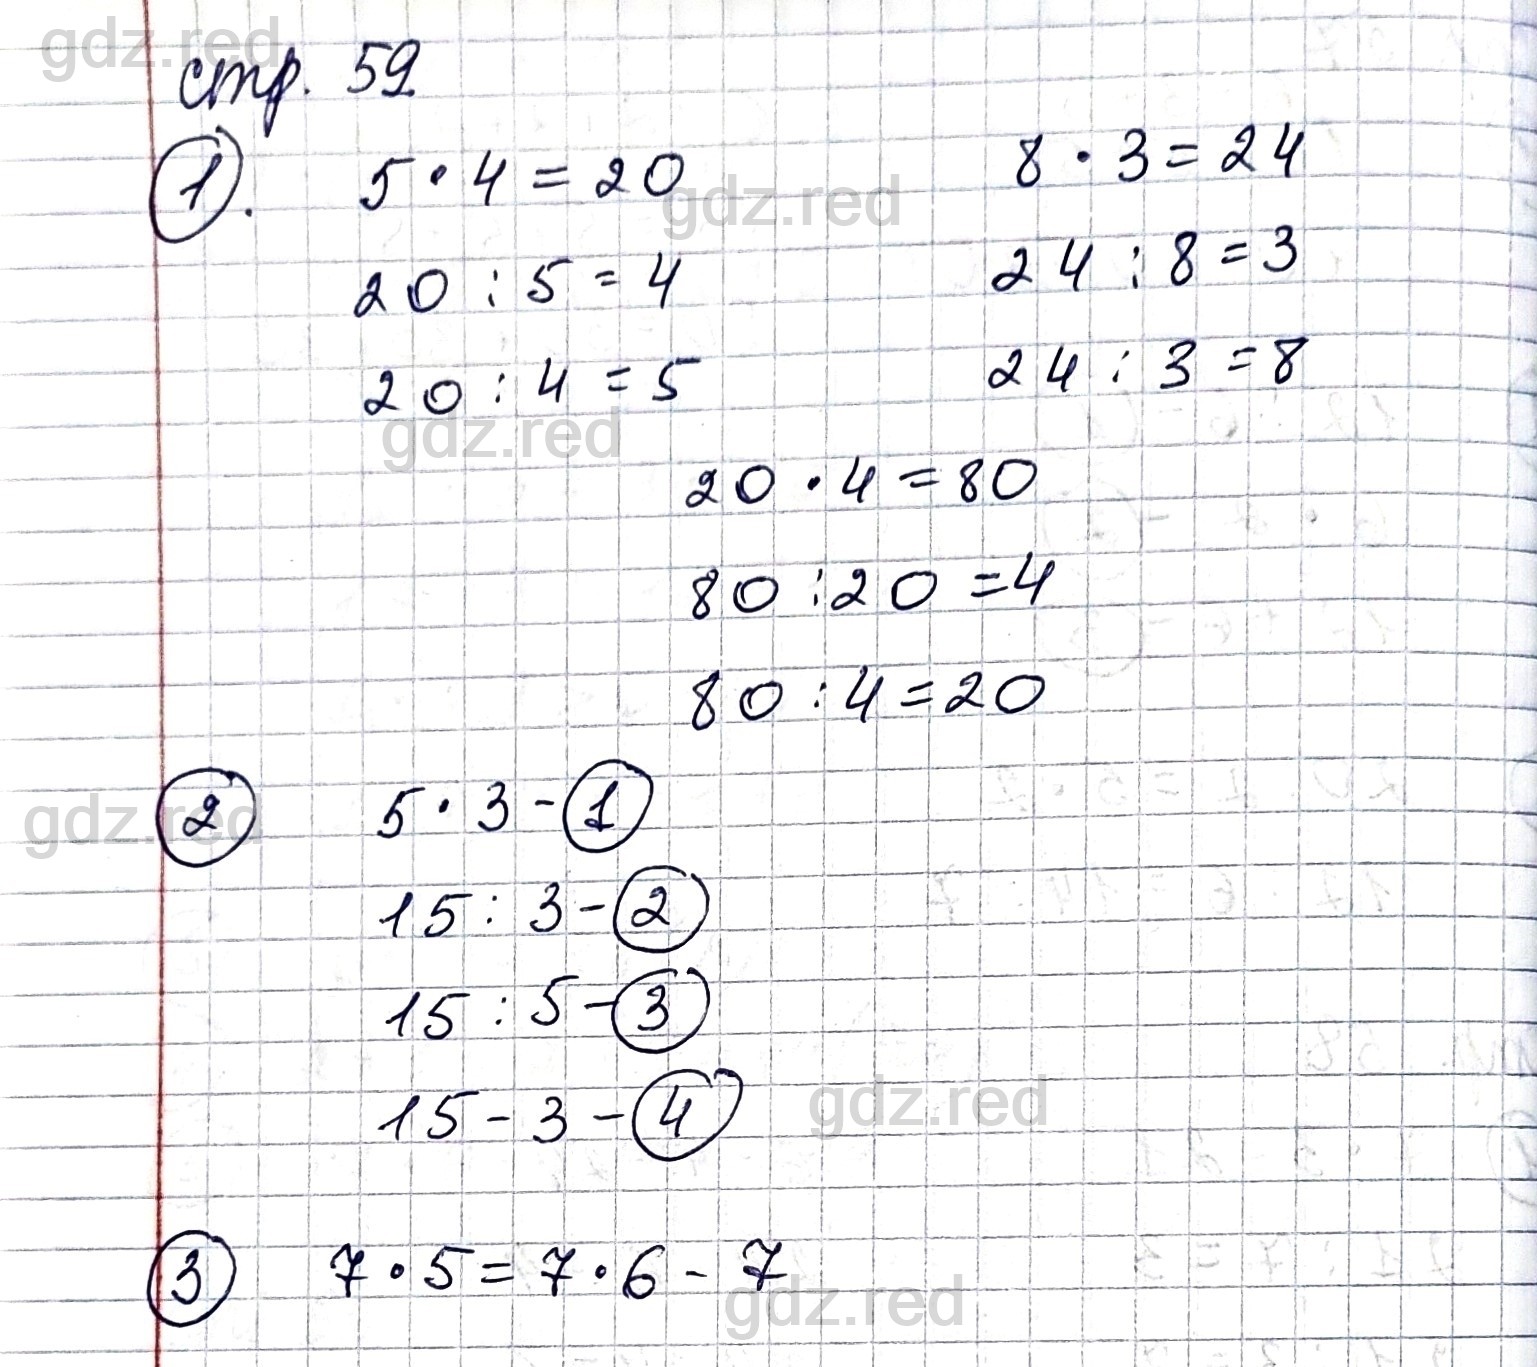 gdz.red
стр. 59
1. 5 · 4 = 20 8 · 3 = 24
gdz.red
20 : 5 = 4 24 : 8 = 3
20 : 4 = 5 24 : 3 = 8
gdz.red
20 · 4 = 80
80 : 20 = 4
80 : 4 = 20
2 5 · 3 - 1
gdz.red
15 : 3 - 2
15 : 5 - 3
15 - 3 - 4
gdz.red
3 7 · 5 = 7 · 6 - 7
gdz.red